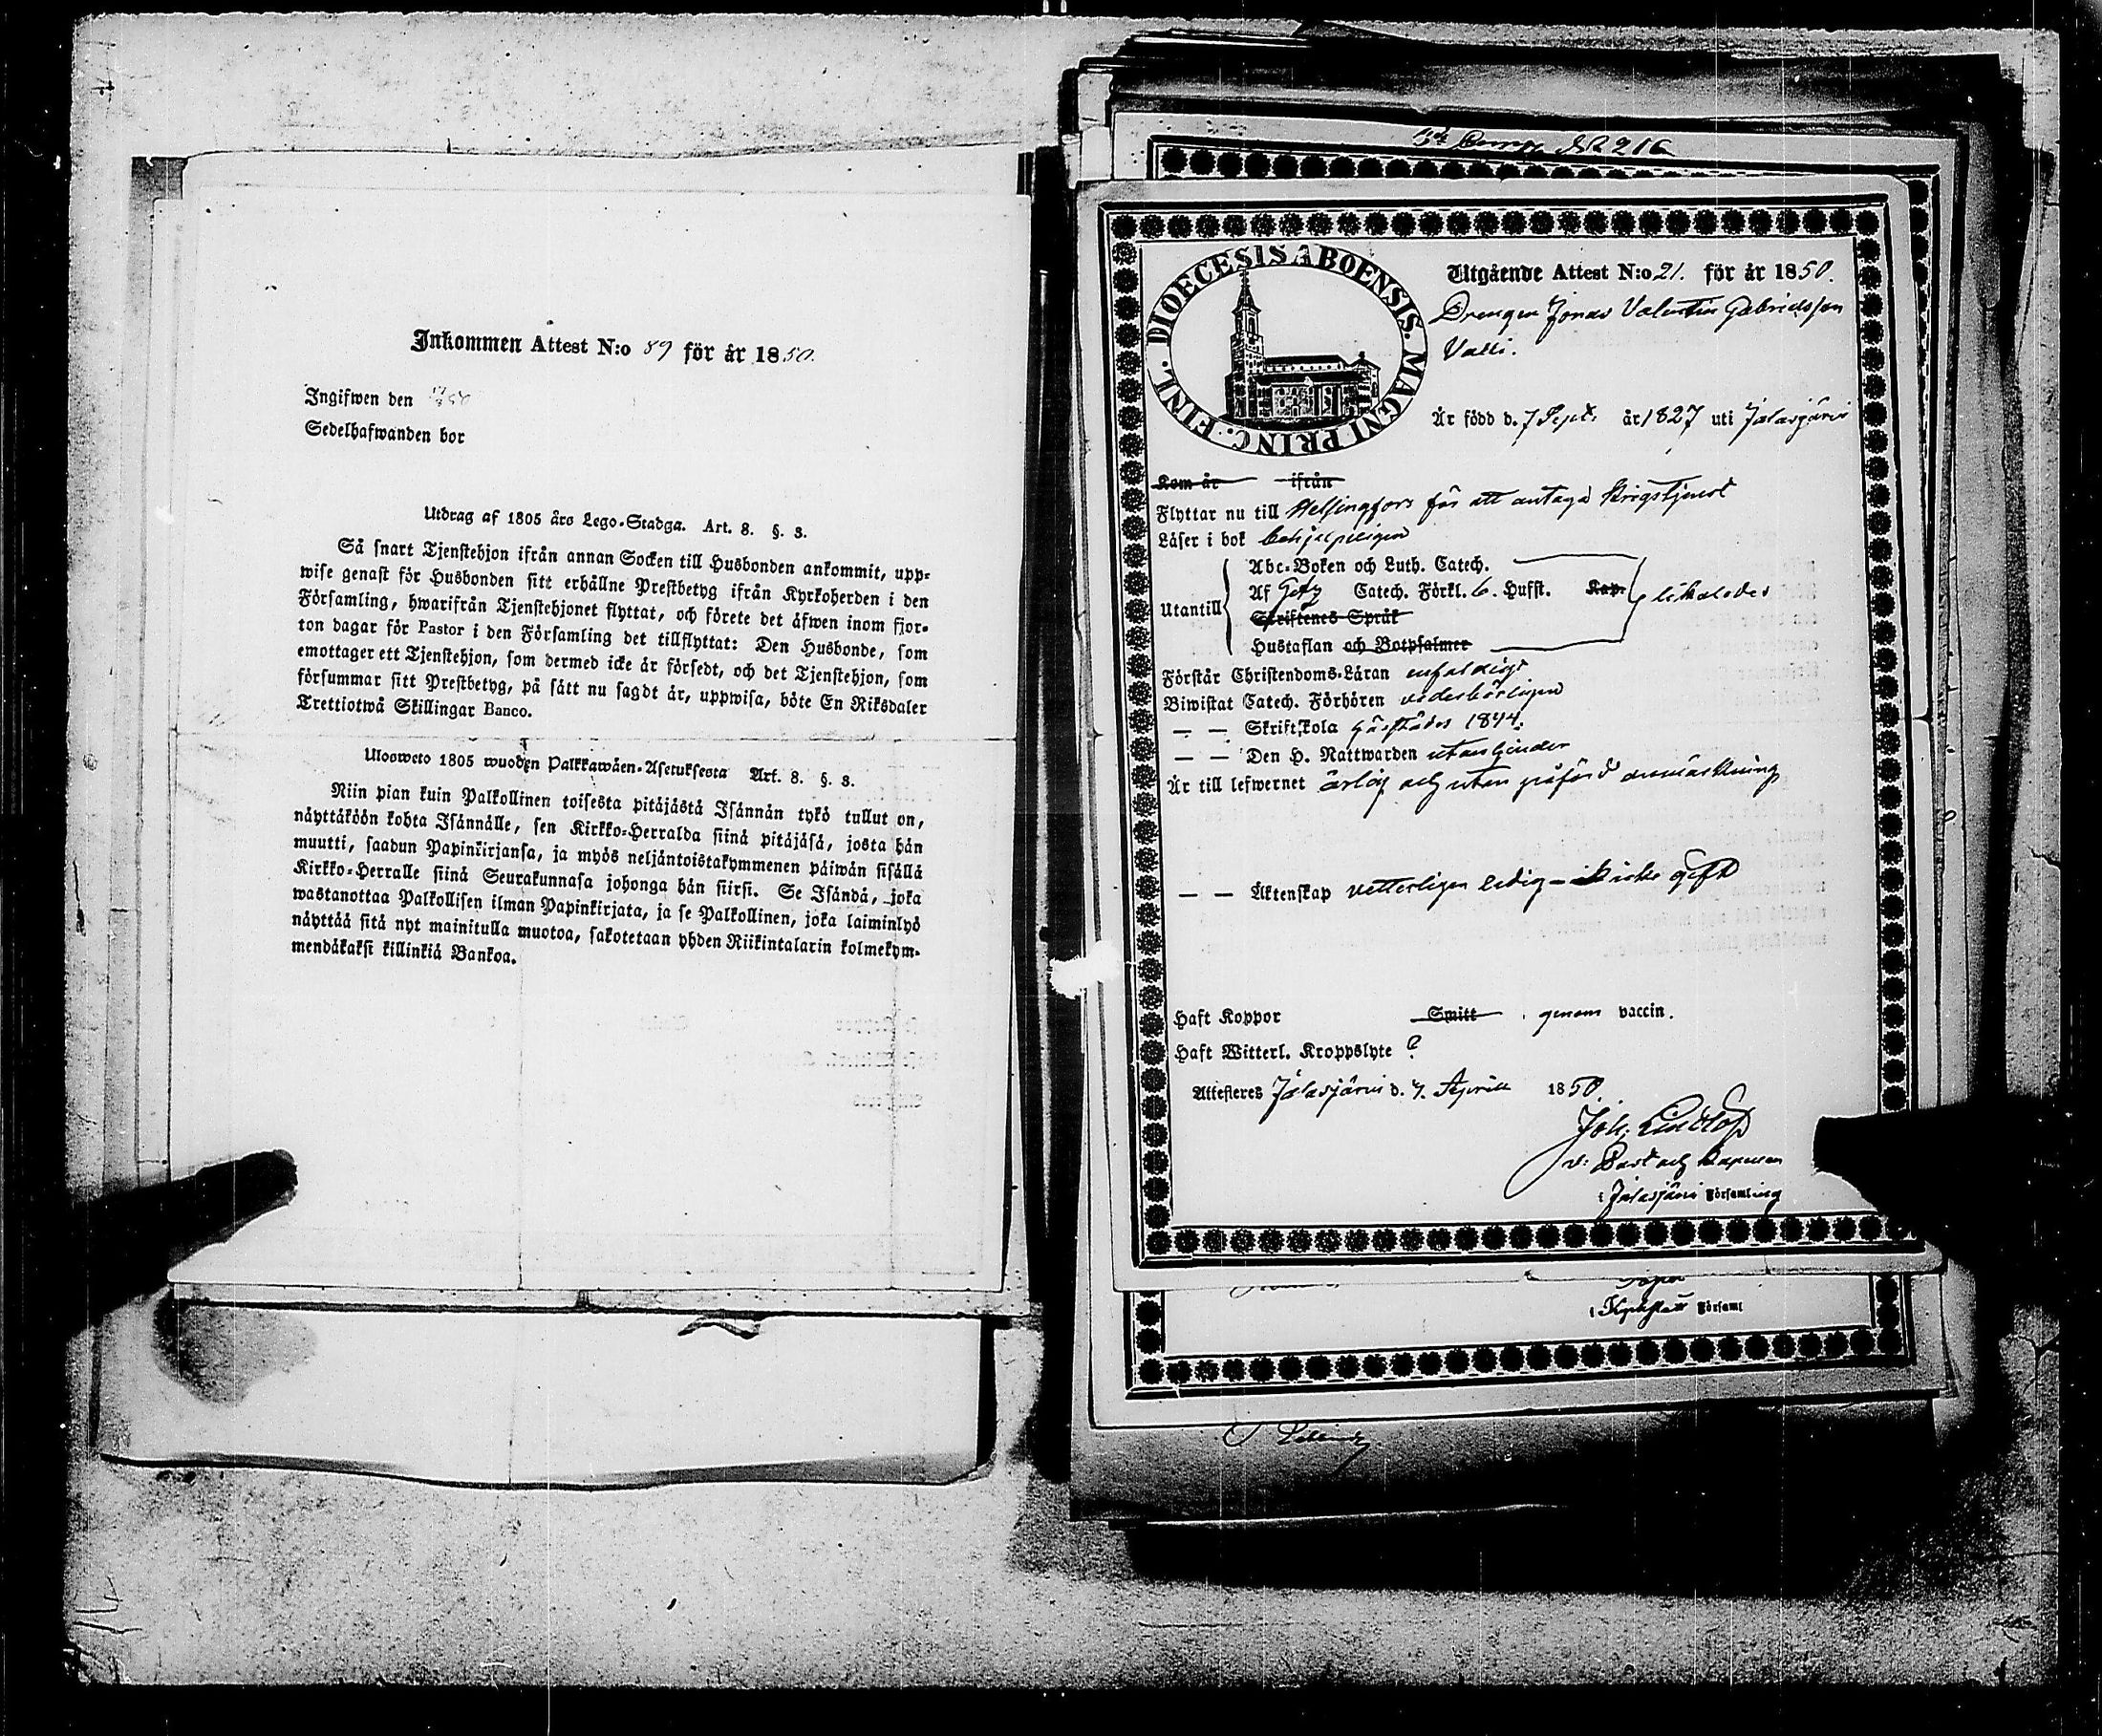 Inkommen Attest N:o 89 för år 1850.
Ingifwen den
Sedelhafwanden bor
Utdrag af 1805 års Lego-Stadga. Art. 8. §. 3.
Så snart Tjenstehjon ifrån annan Socken till Husbonden ankommit, upp-
wise genast för Husbonden sitt erhållne Prestbetyg ifrån Kyrkoherden i den
Församling, hwarifrån Tjenstehjonet flyttat, och förete det äfwen inom fjor-
ton dagar för Pastor i den Församling det tillflyttat: Den Husbonde, som
emottager ett Tjenstehjon, som dermed icke är försedt, och det Tjenstehjon, som
försummar sitt Prestbetyg, på sätt nu sagdt är, uppwisa, böte En Riksdaler
Trettiotwå Skillingar Banco.
Ulosweto 1805 wuoden Palkkawäen-Asetuksesta Art. 8. §. 3.
Niin pian kuin Palkollinen toisesta pitäjästä Isännän tykö tullut on,
näyttäköön kohta Isännälle, sen Kirkko-Herralda siinä pitäjäsä, josta hän
muutti, saadun Papinkirjansa, ja myös neljäntoistakymmenen päiwän sisällä
Kirkko-Herralle siinä Seurakunnasa johonga hän siirsi. Se Isändä, joka
wastanottaa Palkollisen ilman Papinkirjata, ja se Palkollinen, joka laiminlyö
näyttää sitä nyt mainitulla muotoa, sakotetaan yhden Riikintalarin kolmekym-
mendäkaksi killinkiä Bankoa.
№ 216
DIOECESIS ABOENSIS. MAGNI PRINC. FINL.
Utgående Attest N:o 21. för år 1850.
Drengen Jonas Valentin Gabrielsson
Valli.
Är född d. 7 Sept. år 1827 uti Jalasjärvi
Kom år ifrån
Flyttar nu till Helsingfors för att antaga krigstjenst
Läser i bok behjelpeligen
Abc-Boken och Luth. Catech.
Utantill Af Catech. Förkl. 6. Hufst. Kap. likaledes
Skriftenes Språk
Hustaflan och Botpsalmer
Förstår Christendoms-Läran enfaldigt
Biwistat Catech. Förhören vederbörligen
— — Skriftskola härstädes 1844.
— — Den H. Nattwarden utan hinder
Är till lefwernet ärlig och utan påförd anmärkning
— — Äktenskap vetterligen ledig — icke gift
Haft Koppor Smitt genom vaccin.
Haft Witterl. Kroppslyte ?
Attesteres Jalasjärvi d. 7. Aprill 1850.
Joh. Lindlöf
v. Past och Kapellan
i Jalasjärvi Församling
i Församl